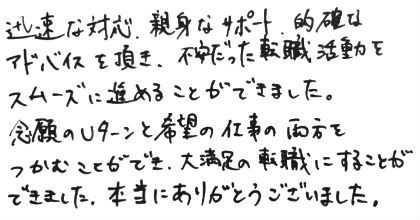 迅速な対応、親身なサポート、的確な
アドバイスを頂き、不安だった転職活動を
スムーズに進めることができました。
念願のUターンと希望の仕事の両方を
つかむことができ、大満足の転職にすることが
できました。本当にありがとうございました。